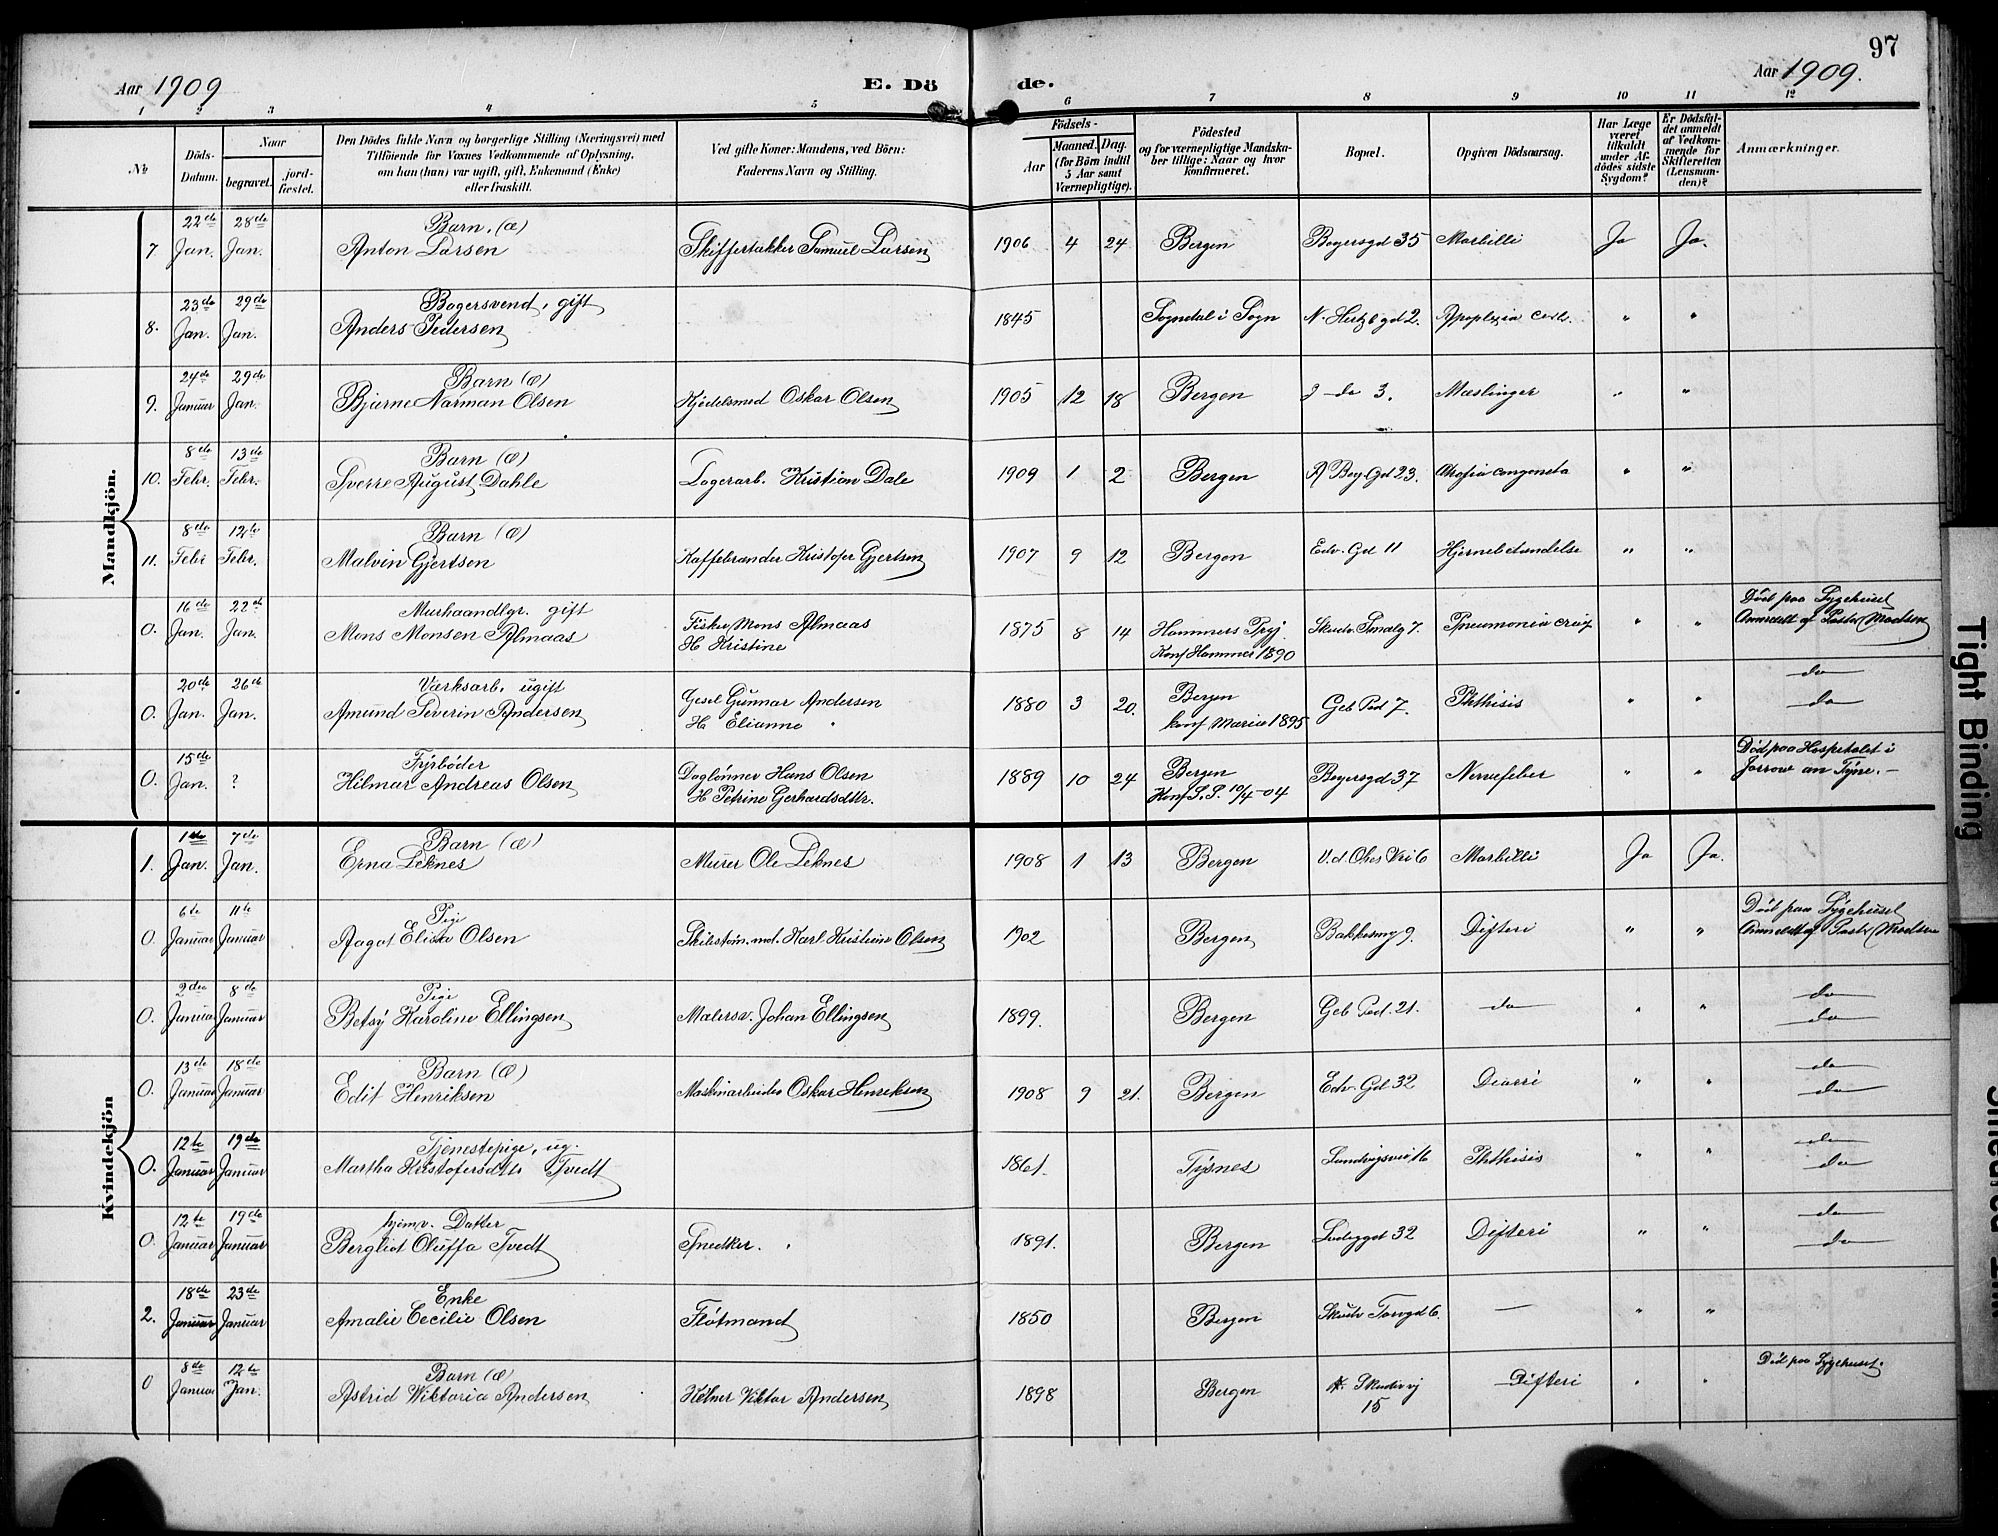 97
Aar 1909
E. Dö
de.
Aar 1909.
1 2 3 4 5 6 7 8 9 10 11 12
No
Döds-Datum.
Naar
begravet.
jord-fæstet.
Den Dödes fulde Navn og borgerlige Stilling (Næringsvei) med
Tilföiende for Voxnes Vedkommende af Oplysning,
om han (hun) var ugift, gift, Enkemand (Enke)
eller fraskilt.
Ved gifte Koner: Mandens, ved Börn:
Faderens Navn og Stilling.
Födsels-
Aar
Maaned. Dag.
(for Börn indtil
5 Aar samt
Værnepligtige).
Födested
og for værnepligtige Mandska-
ber tillige: Naar og hvor
konfirmeret.
Bopæl.
Opgiven Dödsaarsag.
Har Læge
været
tilkaldt
under Af-
dödes sidste
Sygdom?
Er Dödsfal-
det anmeldt
af Vedkom-
mende for
Skifteretten
(Lensman-
den)?
Anmærkninger.
Mandkjön.
22de 28de Barn. (Æ)
7. Jan. Jan. Anton Larsen Skiffertækker Samuel Larsen 1906 4 24 Bergen Bøyersgd 35 Morbilli Ja Ja.
23de 29de Bøgersvend, gift
8. Jan. Jan. Anders Pedersen 1845 Sogndal i Sogn N. Hertzb gd 2. Apoplexia cerb. " "
24de 29de Barn (Æ)
9. Januar Jan. Bjarne Narman Olsen Kjedelsmed Oskar Olsen 1905 12 18 Bergen do 3. Mæslinger " "
8de 13de Barn (Æ)
10. Febr. Febr. Sverre August Dahle Lagerarb. Kristian Dale 1909 1 2 Bergen Bøy. Gd 23. Atrofia congenita " "
8de 12te Barn (Æ)
11. Febr Febr. Malvin Gjertsen Kaffebrænder Kristofer Gjertsen 1907 9 12 Bergen Edv. Gd 11 Hjernebetændelse " "
16de 22de Murhaandlgr. gift
0. Jan. Jan. Mons Monsen Almaas Fisker Mons Almaas
H Kristine 1875 8 14 Hammers Prgj
Konf Hammer 1890 Skudv. Smalg 7. Pneumonia crup " " Död paa Sygehuset
Anmeldt af Pastor Madsen
20de 26de Værksarb. ugift
0. Jan. Jan. Amund Severin Andersen Gesel Gunnar Andersen
H Elianne " 1880 3 20. Bergen
konf Marie 1895 Geb Pad 7. Phthisis " " do
do
15de Fyrbøder
0. Jan. ? Hilmar Andreas Olsen Daglønner Hans Olsen
H Petrine Gerhardsdttr. 1889 10 24 Bergen
Konf S. P. 10/4-04 Bøyersgd 37 Nervefeber " " Död paa Hospitalet i
Jarrow on Tyne. -
Kvindekjön
1ste 7de Barn (Æ)
1. Jan. Jan. Erna Leknes Murer Ole Leknes 1908 1 13 Bergen Morbilli Ja Ja.
6te 11te Pige
0. Januar Januar Aagot Elisa Olsen Karl Kristian Olsen 1902 Bergen Bakkesmg 9. Difteri " " Död paa Sygehuset
Anmeldt af Pastor Madsen
2den 8de Pige
0. Januar Januar Betsy Karoline Ellingsen Malersv. Johan Ellingsen 1899. Bergen Geb Pad. 21. do " " do
do
13de 18de Barn (Æ)
0. Januar Januar Edit Henriksen Maskinarbeider Oskar Henriksen 1908 9 21. Bergen Edv. Gd 32 Diarri " " do
do
12te 19de Tjenestepige, ug.
0. Januar Januar Martha Kristofersdttr Tvedt 1861. Tysnes Phthisis " " do
do
12te 19de hjemv. Datter
0. Januar Januar Bergliot Oluffa Tvedt Snedker. " 1891. Bergen 32 Difteri " " do
do
18de 23de Enke
2. Januar Januar Amalie Cecilie Olsen Fløtmand 1850 Bergen Skudv Torvgd 6. — " "
8de 12te Barn (Æ)
0 Januar Jan. Astrid Viktoria Andersen Viktor Andersen 1898 Bergen Skudevvj
15 Difteri " " Död paa Sygehuset.
Tight Binding